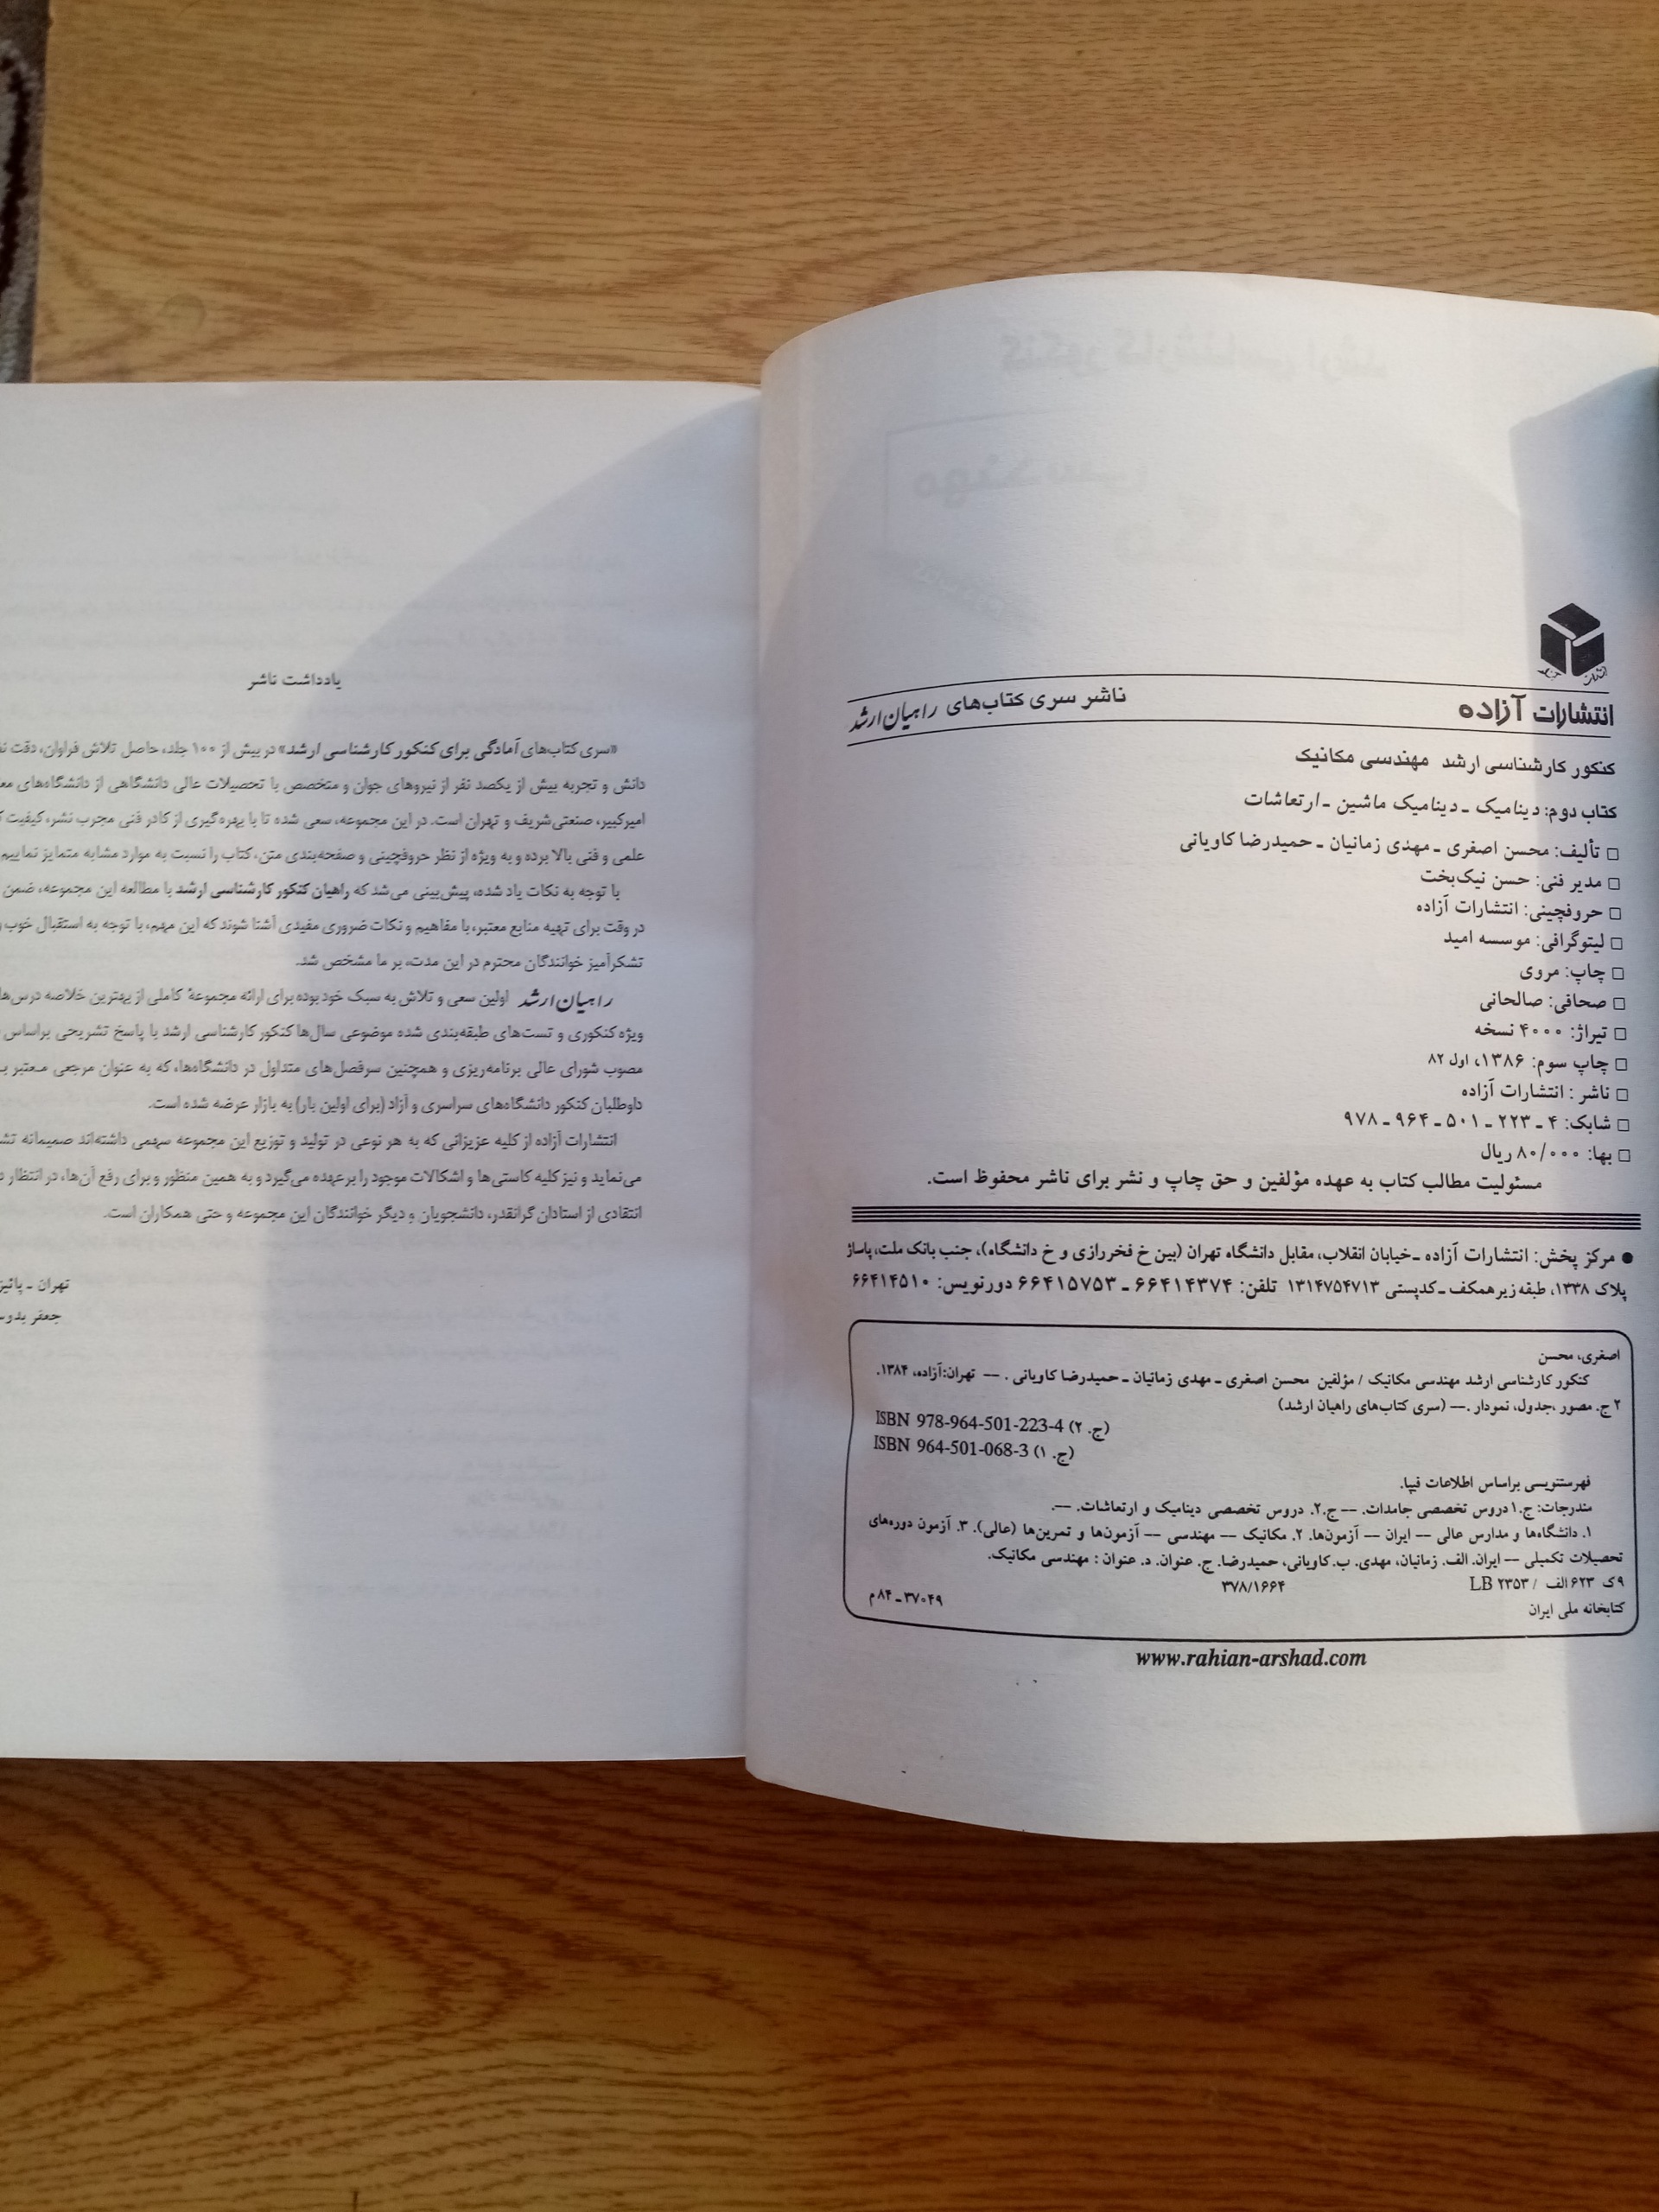 انتشارات آزاده ناشر سری کتاب‌های راهیان ارشد
کنکور کارشناسی ارشد مهندسی مکانیک
کتاب دوم: دینامیک ـ دینامیک ماشین ـ ارتعاشات
□ تألیف: محسن اصغری ـ مهدی زمانیان ـ حمیدرضا کاویانی
□ مدیر فنی: حسن نیک‌بخت
□ حروفچینی: انتشارات آزاده
□ لیتوگرافی: موسسه امید
□ چاپ: مروی
□ صحافی: صالحانی
□ تیراژ: ۴۰۰۰ نسخه
□ چاپ سوم: ۱۳۸۶، اول ۸۲
□ ناشر : انتشارات آزاده
□ شابک: ۴ ـ ۲۲۳ ـ ۵۰۱ ـ ۹۶۴ ـ ۹۷۸
□ بها: ۸۰/۰۰۰ ریال
مسئولیت مطالب کتاب به عهده مؤلفین و حق چاپ و نشر برای ناشر محفوظ است.
● مرکز پخش: انتشارات آزاده ـ خیابان انقلاب، مقابل دانشگاه تهران (بین خ فخررازی و خ دانشگاه)، جنب بانک ملت، پاساژ
پلاک ۱۳۳۸، طبقه زیرهمکف ـ کدپستی ۱۳۱۴۷۵۴۷۱۳ تلفن: ۶۶۴۱۴۳۷۴ ـ ۶۶۴۱۵۷۵۳ دورنویس: ۶۶۴۱۴۵۱۰
اصغری، محسن
کنکور کارشناسی ارشد مهندسی مکانیک / مؤلفین محسن اصغری ـ مهدی زمانیان ـ حمیدرضا کاویانی . –– تهران:آزاده، ۱۳۸۴.
۲ ج. مصور ،جدول، نمودار .–– (سری کتاب‌های راهیان ارشد)
ISBN 978-964-501-223-4 (ج. ۲)
ISBN 964-501-068-3 (ج. ۱)
فهرستنویسی براساس اطلاعات فیپا.
مندرجات: ج.۱ دروس تخصصی جامدات. –– ج.۲. دروس تخصصی دینامیک و ارتعاشات. ––.
۱. دانشگاه‌ها و مدارس عالی –– ایران –– آزمون‌ها. ۲. مکانیک –– مهندسی –– آزمون‌ها و تمرین‌ها (عالی). ۳. آزمون دوره‌های
تحصیلات تکمیلی –– ایران. الف. زمانیان، مهدی. ب. کاویانی، حمیدرضا. ج. عنوان. د. عنوان : مهندسی مکانیک.
۹ک ۶۲۳ الف / ۲۳۵۳ LB ۳۷۸/۱۶۶۴
کتابخانه ملی ایران ۳۷۰۴۹ـ۸۴م
www.rahian-arshad.com
یادداشت ناشر
«سری کتاب‌های آمادگی برای کنکور کارشناسی ارشد» در بیش از ۱۰۰ جلد، حاصل تلاش فراوان، دقت
دانش و تجربه بیش از یکصد نفر از نیروهای جوان و متخصص با تحصیلات عالی دانشگاهی از دانشگاه‌های
امیرکبیر، صنعتی‌شریف و تهران است. در این مجموعه، سعی شده تا با بهره‌گیری از کادر فنی مجرب نشر، کیفیت
علمی و فنی بالا برده و به ویژه از نظر حروفچینی و صفحه‌بندی متن، کتاب را نسبت به موارد مشابه متمایز نماییم
با توجه به نکات یاد شده، پیش‌بینی می‌شد که راهیان کنکور کارشناسی ارشد با مطالعه این مجموعه، ضمن
در وقت برای تهیه منابع معتبر، با مفاهیم و نکات ضروری مفیدی آشنا شوند که این مهم، با توجه به استقبال خوب
تشکرآمیز خوانندگان محترم در این مدت، بر ما مشخص شد.
راهیان ارشد اولین سعی و تلاش به سبک خود بوده برای ارائه مجموعهٔ کاملی از بهترین خلاصه درس‌ها
ویژه کنکوری و تست‌های طبقه‌بندی شده موضوعی سال‌ها کنکور کارشناسی ارشد با پاسخ تشریحی براساس
مصوب شورای عالی برنامه‌ریزی و همچنین سرفصل‌های متداول در دانشگاه‌ها، که به عنوان مرجعی معتبر
داوطلبان کنکور دانشگاه‌های سراسری و آزاد (برای اولین بار) به بازار عرضه شده است.
انتشارات آزاده از کلیه عزیزانی که به هر نوعی در تولید و توزیع این مجموعه سهمی داشته‌اند صمیمانه
می‌نماید و نیز کلیه کاستی‌ها و اشکالات موجود را برعهده می‌گیرد و به همین منظور و برای رفع آن‌ها، در انتظار
انتقادی از استادان گرانقدر، دانشجویان و دیگر خوانندگان این مجموعه و حتی همکاران است.
تهران ـ پائیز
جعفر